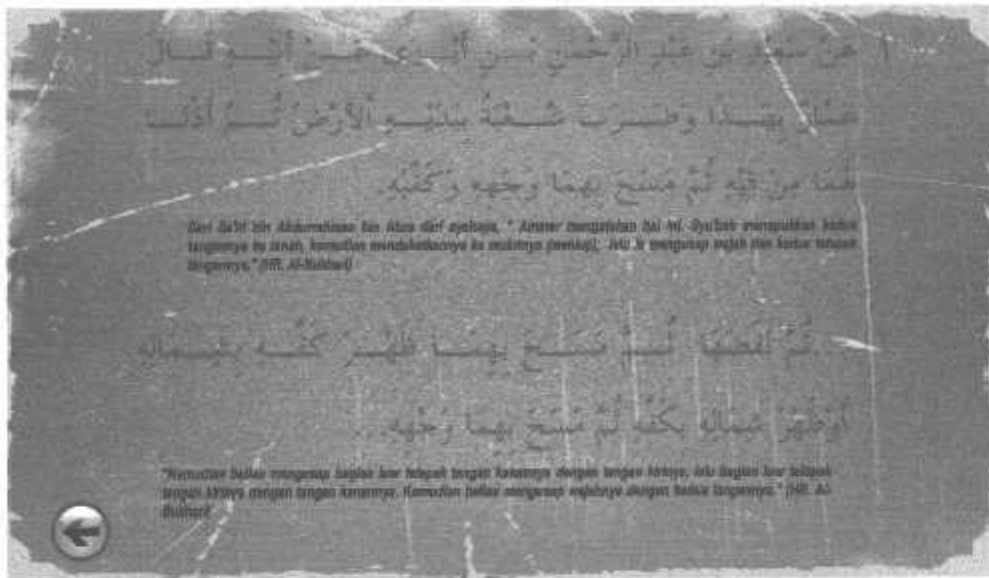 عَنْ سَعِيدِ بْنِ عَبْدِ الرَّحْمَنِ بْنِ أَبْزَى عَنْ أَبِيهِ قَالَ
عَمَّارٌ بِهَذَا وَضَرَبَ شُعْبَةُ بِيَدَيْهِ الْأَرْضَ ثُمَّ أَدْنَا
هُمَا مِنْ فِيْهِ ثُمَّ مَسَحَ بِهِمَا وَجْهَهِ وَكَفَّيْهِ.
Dari Sa'id bin Abdurrahman bin Abza dari ayahnya, " Ammar mengatakan hal ini. Syu'bah menepukkan kedua
tangannya ke tanah, kemudian mendekatkannya ke mulutnya (meniup), lalu ia mengusap wajah dan kedua telapak
tangannya." (HR. Al-Bukhari)
...ثُمَّ نَفَضَهَا ثُمَّ مَسَحَ بِهِمَا ظَهْرَ كَفِّهِ بِشِمَالِهِ
أَوْظَهْرَ شِمَالِهِ بِكَفِّهِ ثُمَّ مَسَحَ بِهِمَا وَجْهَهِ...
"Kemudian beliau mengusap bagian luar telapak tangan kanannya dengan tangan kirinya, lalu bagian luar telapak
tangan kirinya dengan tangan kanannya. Kemudian beliau mengusap wajahnya dengan kedua tangannya." (HR. Al-
Bukhari)